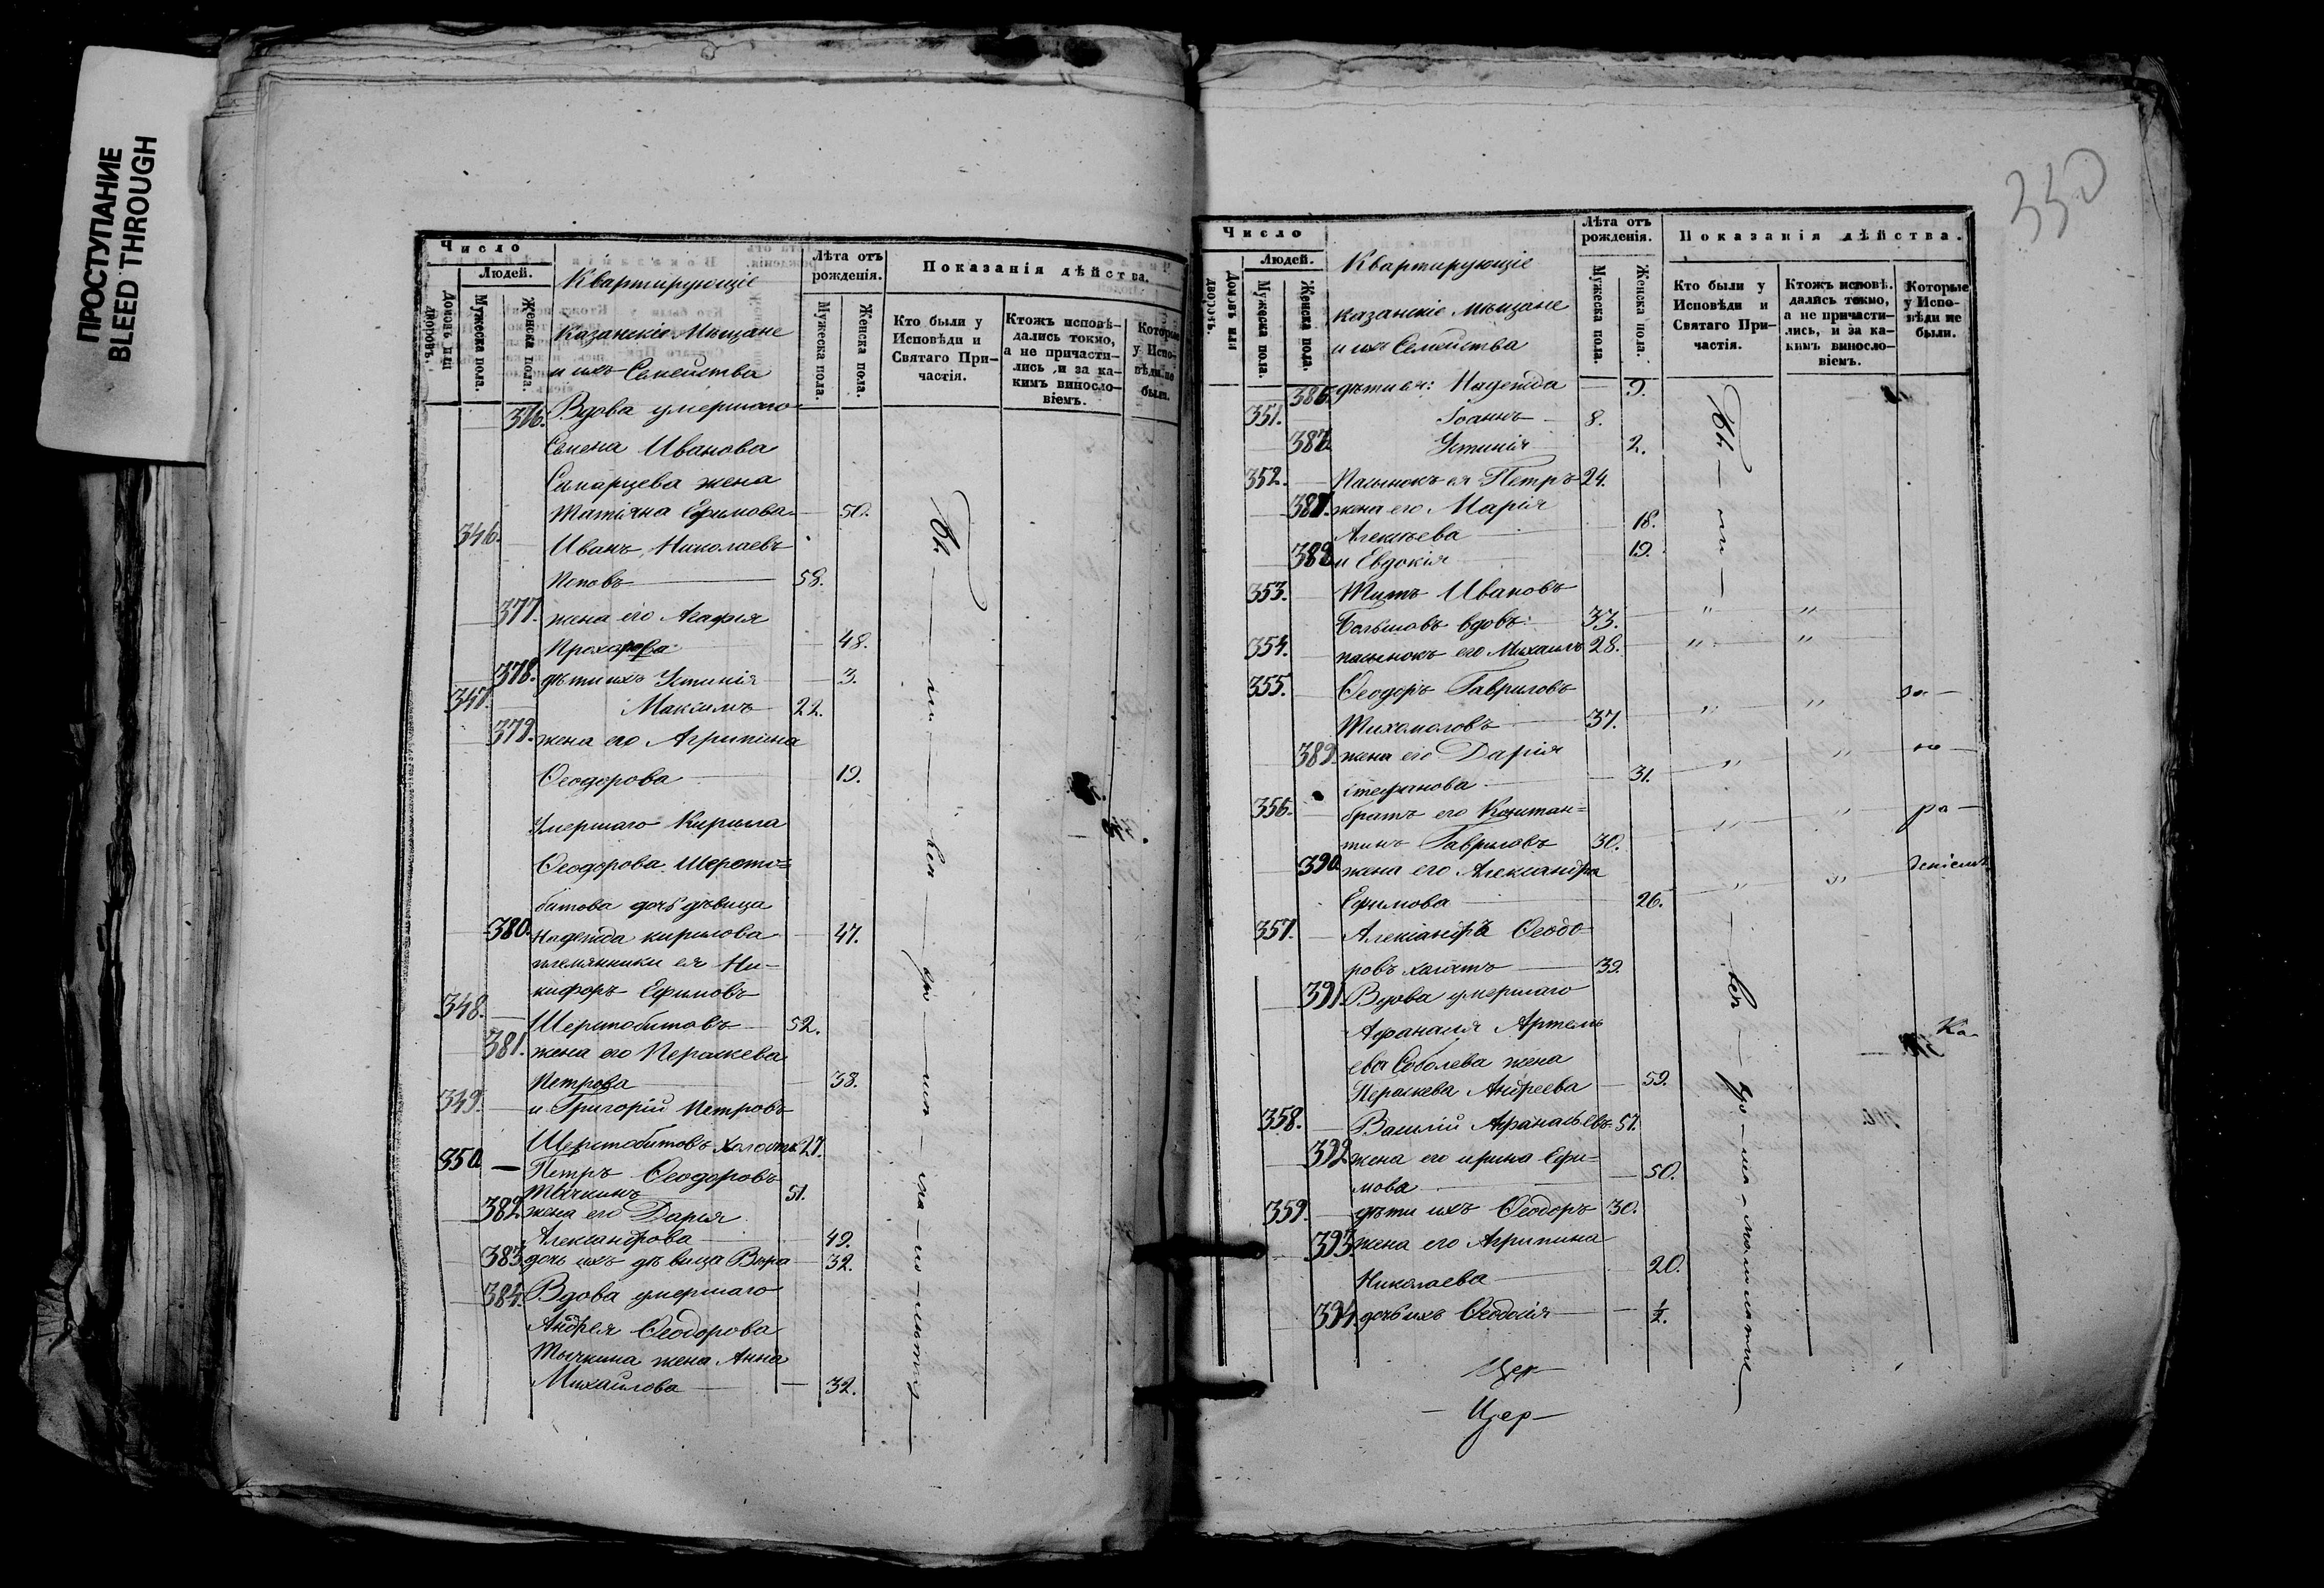 ПРОСТУПАНИЕ
BLEED THROUGH
Число
Людей.
Домовъ или дворовъ.
Мужеска пола.
Женска пола.
Квартирующіе
Казанскіе Мѣщане
и ихъ Семейства
Лѣта отъ рожденія.
Мужеска пола.
Женска пола.
Показанія дѣйства.
Кто были у Исповѣди и Святаго Причастія.
Ктожъ исповѣдались токмо, а не причастились, и за какимъ винословіемъ.
Которые у Исповѣди не были.
376. Вдова умершаго
Семена Иванова
Самарцева жена
Татіяна Ефимова 50.
346. Иванъ Николаевъ
Поповъ 58.
377. жена его Агафія
Прохорова 48.
378. дѣти ихъ Устинія 3.
347. Максимъ 22.
379. жена его Агрипина
Ѳеодорова 19.
Умершаго Кирилла
Ѳеодорова Шерсто=
битова дочь дѣвица
380. Надежда Кирилова 47.
племянники ея Ни-
кифоръ Ефимовъ
348. Шерстобитовъ 52.
381. жена его Параскева
Петрова 38.
349. и Григорій Петровъ
Шерстобитовъ холостъ 27.
350 Петръ Ѳеодоровъ
Тычкинъ 51.
382. жена его Дарія
Александрова 49.
383. дочь ихъ дѣвица Вѣра 32.
384. Вдова умершаго
Андрея Ѳеодорова
Тычкина жена Анна
Михайлова 32.
350
Число
Людей.
Домовъ или дворовъ.
Мужеска пола.
Женска пола.
Квартирующіе
казанскіе мѣщане
и ихъ Семейства
Лѣта отъ рожденія.
Мужеска пола.
Женска пола.
Показанія дѣйства.
Кто были у Исповѣди и Святаго Причастія.
Ктожъ исповѣдались токмо, а не причастились, и за какимъ винословіемъ.
Которые у Исповѣди не были.
386. дѣти ея: Надежда 9.
351. Іоаннъ 8.
387. Устинія 2.
352. Пасынокъ ея Петръ 24.
жена его Марія
Алексѣева 18.
388 и Евдокія 19.
353. Титъ Ивановъ
вдовъ 33.
354. пасынокъ его Михаилъ 28.
355. Ѳеодоръ Гавриловъ
Тихомоловъ 37.
389. жена его Дарія
стефанова 31.
356. братъ его Констан=
тинъ Гавриловъ 30.
390. жена его Александра
Ефимова 26.
357. Александръ Ѳеодо-
ровъ холостъ 39.
391. Вдова умершаго
Афанасія Артемь
ева Соболева жена
Параскева Андреева 59.
358. Василій Афанасьевъ 51.
392. жена его ирина Ефи=
мова 50.
359. дѣти ихъ Ѳеодоръ 30.
393. жена его Агрипина
Николаева 20.
394. дочь ихъ Ѳеодосія ½.
Цер
Цер